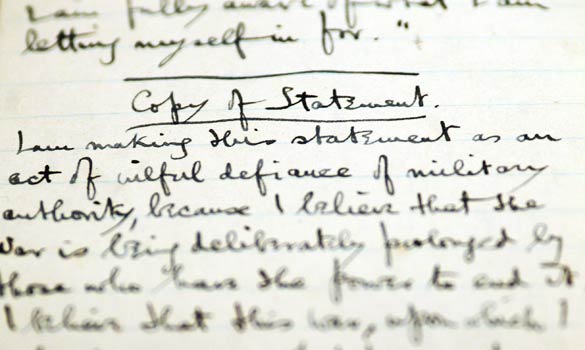 I am fully aware of what I am
letting myself in for."
Copy of Statement.
I am making this statement as an
act of wilful defiance of military
authority, because I believe that the
War is being deliberately prolonged by
those who have the power to end it
I believe that this war, upon which I